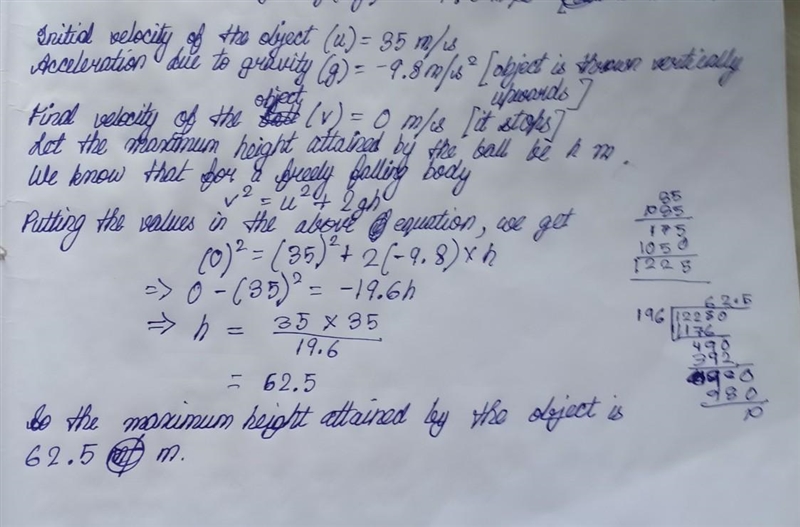 Initial velocity of the object (u) = 35 m/s
Acceleration due to gravity (g) = -9.8 m/s² [object is thrown vertically upwards]
Final velocity of the object (v) = 0 m/s [it stops]
Let the maximum height attained by the ball be h m.
We know that for a freely falling body
v² = u² + 2gh
Putting the values in the above equation, we get
(0)² = (35)² + 2(-9.8) × h
=> 0 - (35)² = -19.6h
=> h = 35 × 35
19.6
= 62.5
So the maximum height attained by the object is
62.5 m.
35
175
1050
1225
62.5
196 12250
1176
490
392
980
980
0